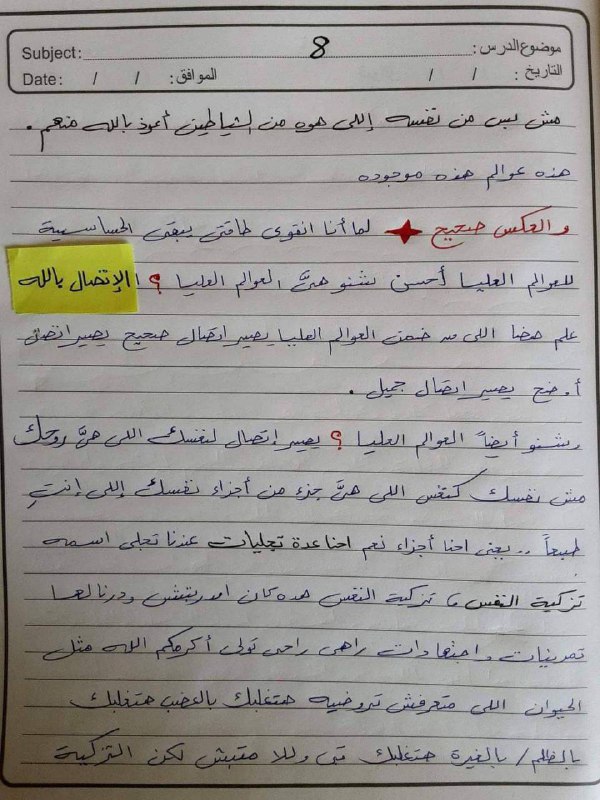 موضوع الدرس: 8 Subject:
التاريخ: / / الموافق: / / Date:
مش بس من نفسه إللي هوه من الشياطين أعوذ بالله منهم .
هذه عوالم هذه موجوده
والعكس صحيح لما أنا انقوي طاقتي يبقى الحساسية
للعوالم العليا أحسن شنو هيَّ العوالم العليا ؟ الإتصال بالله
علم هضا اللي من ضمن العوالم العليا يصير اتصال صحيح يصير اتصال
أوضح يصير اتصال جميل .
وشنو أيضاً العوالم العليا ؟ يصير إتصال لنفسك اللي هيَّ روحك
مش نفسك كنفس اللي هيَّ جزء من أجزاء نفسك إللي إنتِ
طبعاً .. يعني احنا أجزاء نعم احنا عدة تجليات عندنا تجلي اسمه
تزكية النفس ما تزكية النفس هذه كان ودرنالها
تمرينات واجتهادات راهي راحي تولي أكرمكم الله مثل
الحيوان اللي متعرفش تروضيه حتغلبك بالغضب حتغلبك
بالظلم / بالغيرة حتغلبك لكن التزكية